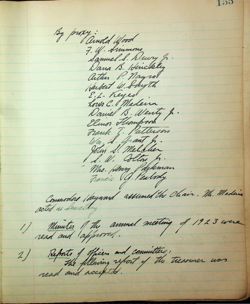 133
By proxy:
Arnold Wood
F. W. Simmons
Samuel S. Dewry Jr.
Dana B. Hinckley
Arthur P.
Herbert W. Smyth
E. L. Keyes
Louis C. Madeira
Daniel B. Wentz Jr.
Elinor Thompson
Frank T. Patterson
Wm. S. Grant Jr.
John S. Melcher
S. W. Colton Jr.
Mrs. Henry Parkman
Francis Peabody
Commodore Hayward assumed the Chair. Mr. Madeira
acted as
1) Minutes of the annual meeting of 1923 were
read and approved.
2) Reports of officers and committees:
The following report of the treasurer was
read and accepted.